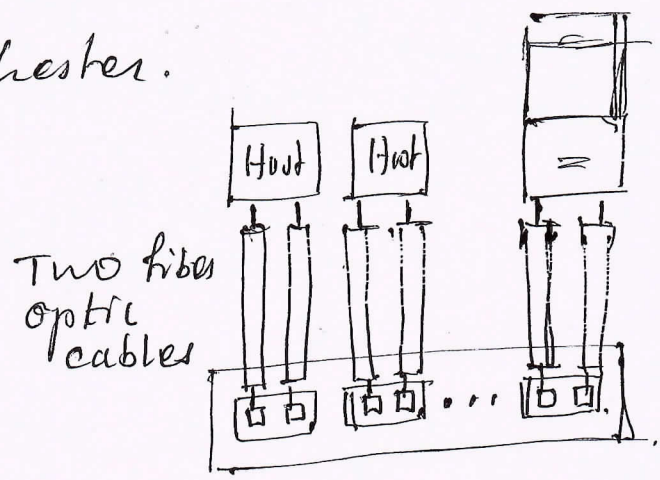 Host Host
Two fiber
optic
cables
...